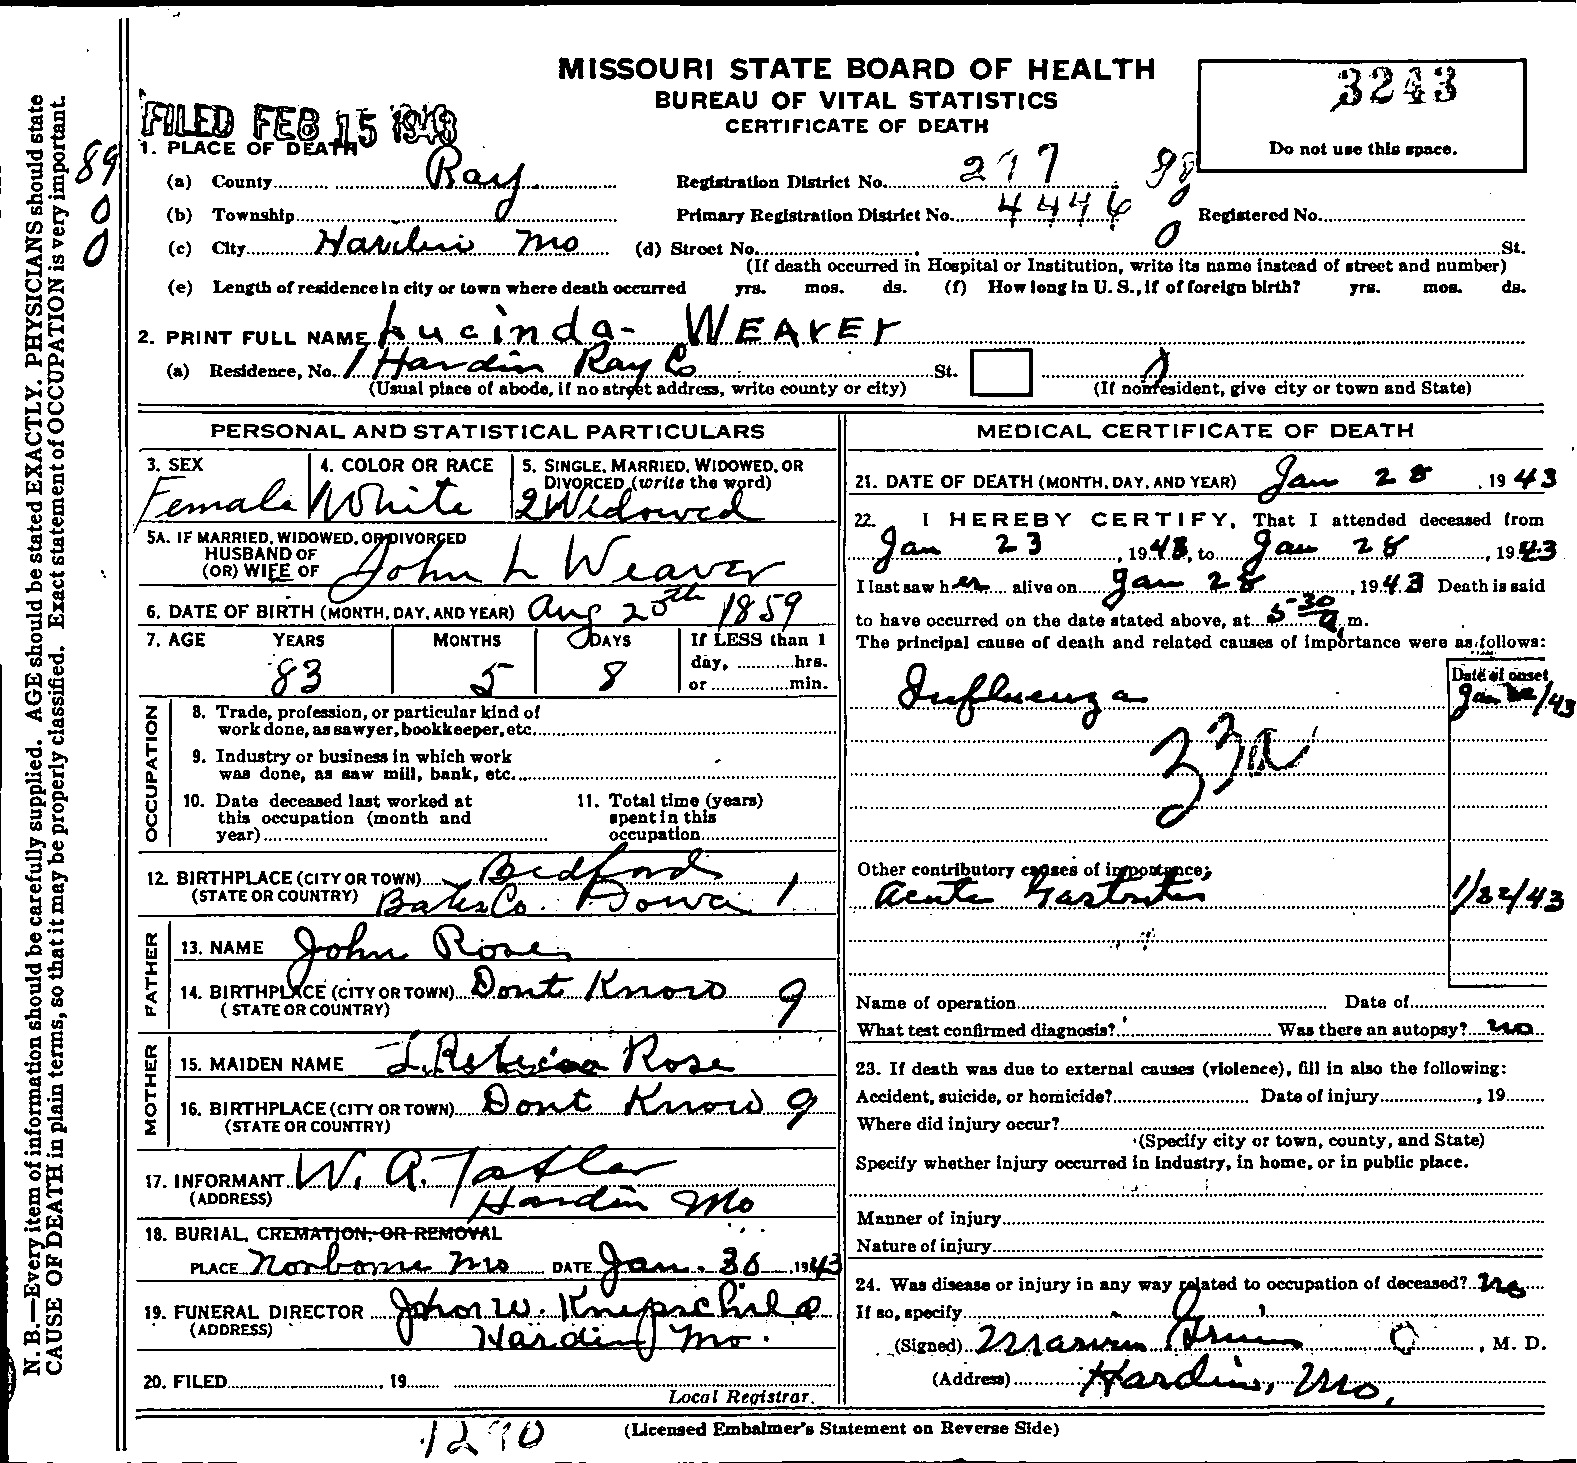 MISSOURI STATE BOARD OF HEALTH
BUREAU OF VITAL STATISTICS
CERTIFICATE OF DEATH
3243
Do not use this space.
FILED FEB 15 1943
1. PLACE OF DEATH
(a) County Ray
Registration District No. 277
(b) Township
Primary Registration District No. 4446
Registered No.
(c) City Hardin Mo
(d) Street No. St.
(If death occurred in Hospital or Institution, write its name instead of street and number)
(e) Length of residence in city or town where death occurred yrs. mos. ds. (f) How long in U. S., if of foreign birth? yrs. mos. ds.
2. PRINT FULL NAME Lucinda WEAVEr
(a) Residence, No. Hardin Ray Co St.
(Usual place of abode, if no street address, write county or city) (If nonresident, give city or town and State)
89
0
0
98
0
0
N. B.—Every item of information should be carefully supplied. AGE should be stated EXACTLY. PHYSICIANS should state
CAUSE OF DEATH in plain terms, so that it may be properly classified. Exact statement of OCCUPATION is very important.
PERSONAL AND STATISTICAL PARTICULARS
3. SEX
Female
4. COLOR OR RACE
White
5. SINGLE, MARRIED, WIDOWED, OR
DIVORCED (write the word)
2 Widowed
5A. IF MARRIED, WIDOWED, OR DIVORCED
HUSBAND OF
(OR) WIFE OF John L Weaver
6. DATE OF BIRTH (MONTH, DAY, AND YEAR) Aug 20th 1859
7. AGE YEARS MONTHS DAYS If LESS than 1
day, hrs.
or min.
83 5 8
OCCUPATION
8. Trade, profession, or particular kind of
work done, as sawyer, bookkeeper, etc.
9. Industry or business in which work
was done, as saw mill, bank, etc.
10. Date deceased last worked at
this occupation (month and
year)
11. Total time (years)
spent in this
occupation
12. BIRTHPLACE (CITY OR TOWN) Bedford
(STATE OR COUNTRY) Bates Co. Iowa 1
FATHER
13. NAME John Rose
14. BIRTHPLACE (CITY OR TOWN) Dont Know 9
(STATE OR COUNTRY)
MOTHER
15. MAIDEN NAME Rose
16. BIRTHPLACE (CITY OR TOWN) Dont Know 9
(STATE OR COUNTRY)
17. INFORMANT W. A.
(ADDRESS) Hardin Mo
18. BURIAL, CREMATION, OR REMOVAL
PLACE Norborne Mo DATE Jan. 30, 1943
19. FUNERAL DIRECTOR John W. Knipschild
(ADDRESS) Hardin Mo.
20. FILED , 19
Local Registrar.
MEDICAL CERTIFICATE OF DEATH
21. DATE OF DEATH (MONTH, DAY, AND YEAR) Jan 28, 1943
22. I HEREBY CERTIFY, That I attended deceased from
Jan 23, 1943, to Jan 28, 1943
I last saw her alive on Jan 28, 1943 Death is said
to have occurred on the date stated above, at 5-30 a. m.
The principal cause of death and related causes of importance were as follows:
Date of onset
Influenza
Jan /43
33a
Other contributory causes of importance;
Acute Gastritis 1/22/43
Name of operation Date of
What test confirmed diagnosis? Was there an autopsy? no
23. If death was due to external causes (violence), fill in also the following:
Accident, suicide, or homicide? Date of injury , 19
Where did injury occur?
(Specify city or town, county, and State)
Specify whether injury occurred in industry, in home, or in public place.
Manner of injury
Nature of injury
24. Was disease or injury in any way related to occupation of deceased? no
If so, specify
(Signed) , M. D.
(Address) Hardin, Mo.
(Licensed Embalmer's Statement on Reverse Side)
1290